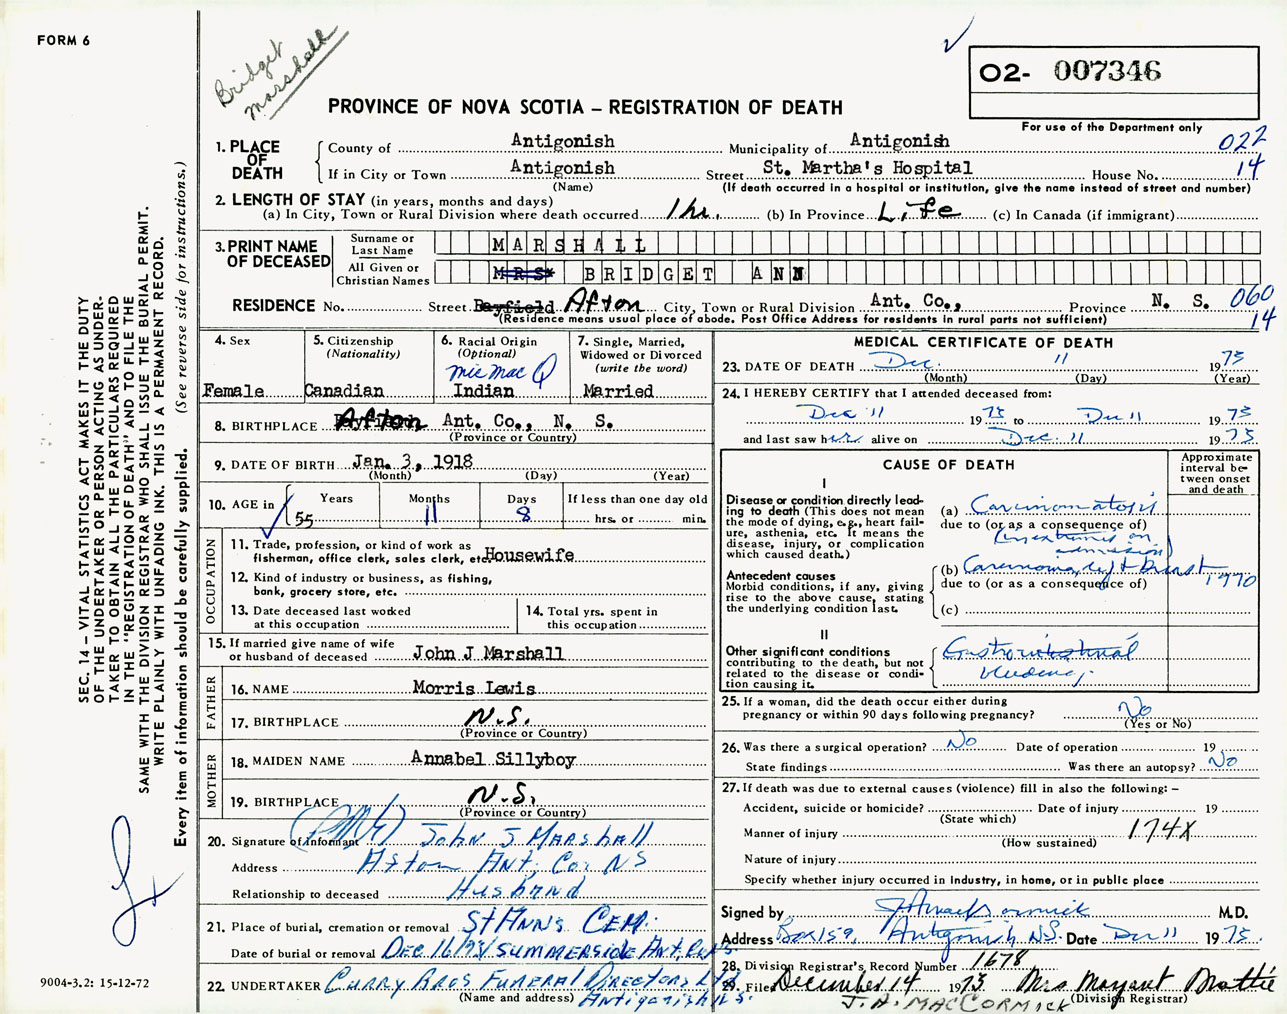 FORM 6
Bridget
Marshall
O2- 007346
PROVINCE OF NOVA SCOTIA – REGISTRATION OF DEATH
For use of the Department only
1. PLACE OF DEATH
County of Antigonish Municipality of Antigonish 022
If in City or Town Antigonish Street St. Martha's Hospital House No. 14
(Name) (If death occurred in a hospital or institution, give the name instead of street and number)
2. LENGTH OF STAY (in years, months and days)
(a) In City, Town or Rural Division where death occurred 1 hr. (b) In Province Life (c) In Canada (if immigrant)
3. PRINT NAME OF DECEASED
Surname or Last Name MARSHALL
All Given or Christian Names MRS BRIDGET ANN
RESIDENCE No. Street Bayfield Afton City, Town or Rural Division Ant. Co., Province N. S. 060
(Residence means usual place of abode. Post Office Address for residents in rural parts not sufficient) 14
4. Sex
Female
5. Citizenship
(Nationality)
Canadian
6. Racial Origin
(Optional)
micmac
Indian
7. Single, Married,
Widowed or Divorced
(write the word)
Married
8. BIRTHPLACE Afton Ant. Co., N. S.
(Province or Country)
9. DATE OF BIRTH Jan. 3, 1918
(Month) (Day) (Year)
10. AGE in Years Months Days If less than one day old
55 11 8 hrs. or min.
OCCUPATION
11. Trade, profession, or kind of work as
fisherman, office clerk, sales clerk, etc. Housewife
12. Kind of industry or business, as fishing,
bank, grocery store, etc.
13. Date deceased last worked
at this occupation
14. Total yrs. spent in
this occupation
15. If married give name of wife
or husband of deceased John J Marshall
FATHER
16. NAME Morris Lewis
17. BIRTHPLACE N.S.
(Province or Country)
MOTHER
18. MAIDEN NAME Annabel Sillyboy
19. BIRTHPLACE N.S.
(Province or Country)
20. Signature of Informant John J Marshall
Address Afton Ant. Co. NS
Relationship to deceased Husband
21. Place of burial, cremation or removal St Ann's Cem.
Date of burial or removal Dec 16/73 Summerside Ant. Co.
22. UNDERTAKER Curry Bros Funeral Directors Ltd
(Name and address) Antigonish N.S.
MEDICAL CERTIFICATE OF DEATH
23. DATE OF DEATH Dec. 11 1973
(Month) (Day) (Year)
24. I HEREBY CERTIFY that I attended deceased from:
Dec 11 1973 to Dec 11 1973
and last saw her alive on Dec. 11 1973
CAUSE OF DEATH
Approximate
interval be-
tween onset
and death
I
Disease or condition directly lead-
ing to death (This does not mean
the mode of dying, e.g., heart fail-
ure, asthenia, etc. It means the
disease, injury, or complication
which caused death.)
(a) Carcinomatosis
due to (or as a consequence of)
(in extremis on
admission)
Antecedent causes
Morbid conditions, if any, giving
rise to the above cause, stating
the underlying condition last.
(b) Carcinoma, left breast 1970
due to (or as a consequence of)
(c)
II
Other significant conditions
contributing to the death, but not
related to the disease or condi-
tion causing it.
Gastrointestinal
bleeding.
25. If a woman, did the death occur either during
pregnancy or within 90 days following pregnancy? No
(Yes or No)
26. Was there a surgical operation? No Date of operation 19
State findings Was there an autopsy? No
27. If death was due to external causes (violence) fill in also the following: –
Accident, suicide or homicide? Date of injury 19
(State which)
Manner of injury 174X
(How sustained)
Nature of injury
Specify whether injury occurred in Industry, in home, or in public place
Signed by J H MacCormick M.D.
Address Box 159, Antigonish, N.S. Date Dec 11 1973
28. Division Registrar's Record Number 1678
29. Filed December 14 1973 Mrs Margaret Beattie
J. H. MACCORMICK (Division Registrar)
SEC. 14 – VITAL STATISTICS ACT MAKES IT THE DUTY
OF THE UNDERTAKER OR PERSON ACTING AS UNDER-
TAKER TO OBTAIN ALL THE PARTICULARS REQUIRED
IN THE "REGISTRATION OF DEATH" AND TO FILE THE
SAME WITH THE DIVISION REGISTRAR WHO SHALL ISSUE THE BURIAL PERMIT.
WRITE PLAINLY WITH UNFADING INK. THIS IS A PERMANENT RECORD.
Every item of information should be carefully supplied. (See reverse side for instructions.)
9004-3.2: 15-12-72